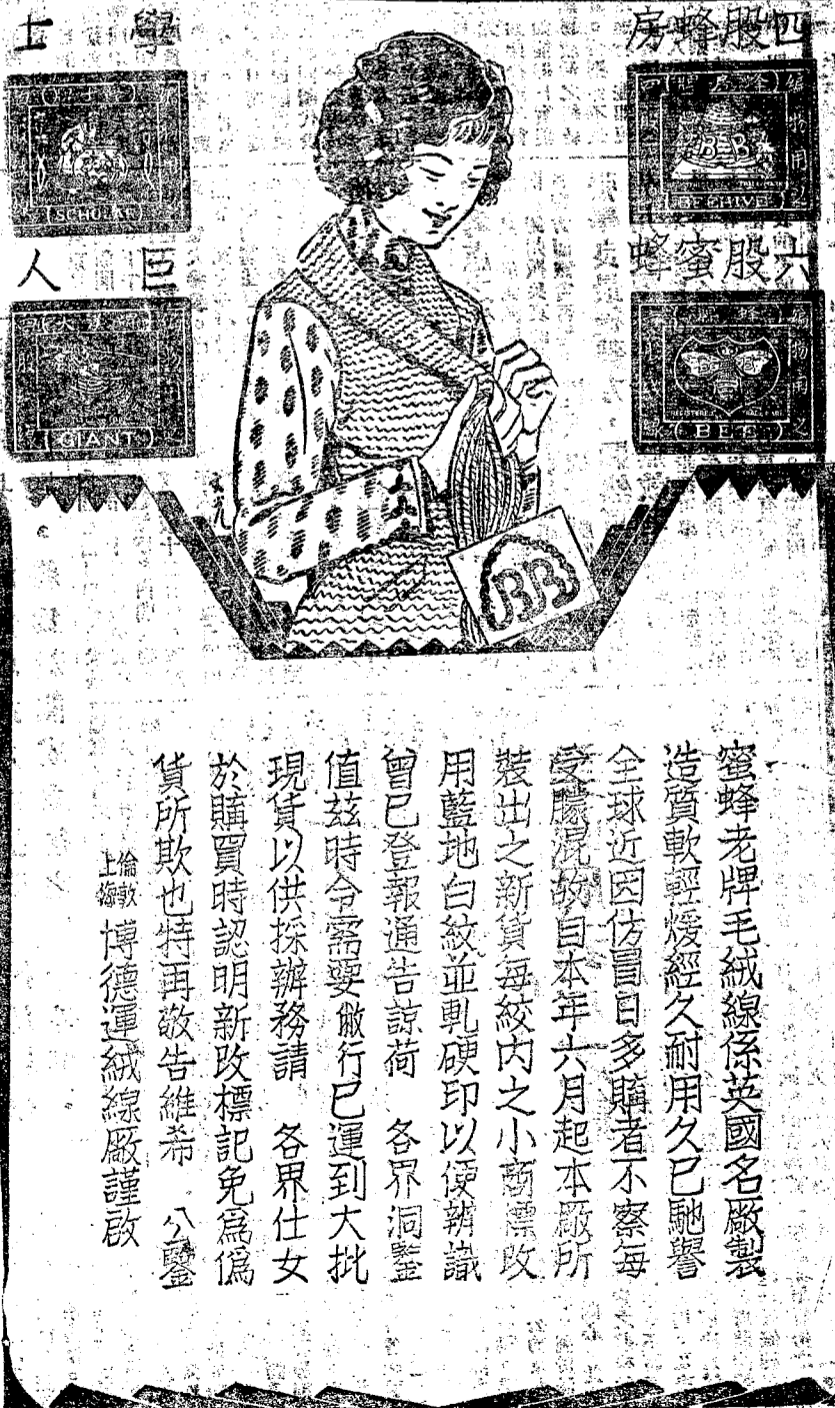 四股蜂房
BEEHIVE
六股蜜蜂
BEE
學士
SCHOLAR
巨人
GIANT
BB
蜜蜂老牌毛絨線係英國名廠製
造質軟輕煖經久耐用久已馳譽
全球近因仿冒日多購者不察每
受朦混故自本年六月起本廠所
裝出之新貨每絞内之小商標改
用藍地白紋並軋硬印以便辨識
曾已登報通告諒荷 各界洞鑒
值茲時令需要敝行已運到大批
現貨以供採辦務請 各界仕女
於購買時認明新改標記免爲僞
貨所欺也特再敬告維希 公鑒
倫敦
上海
博德運絨線廠謹啟